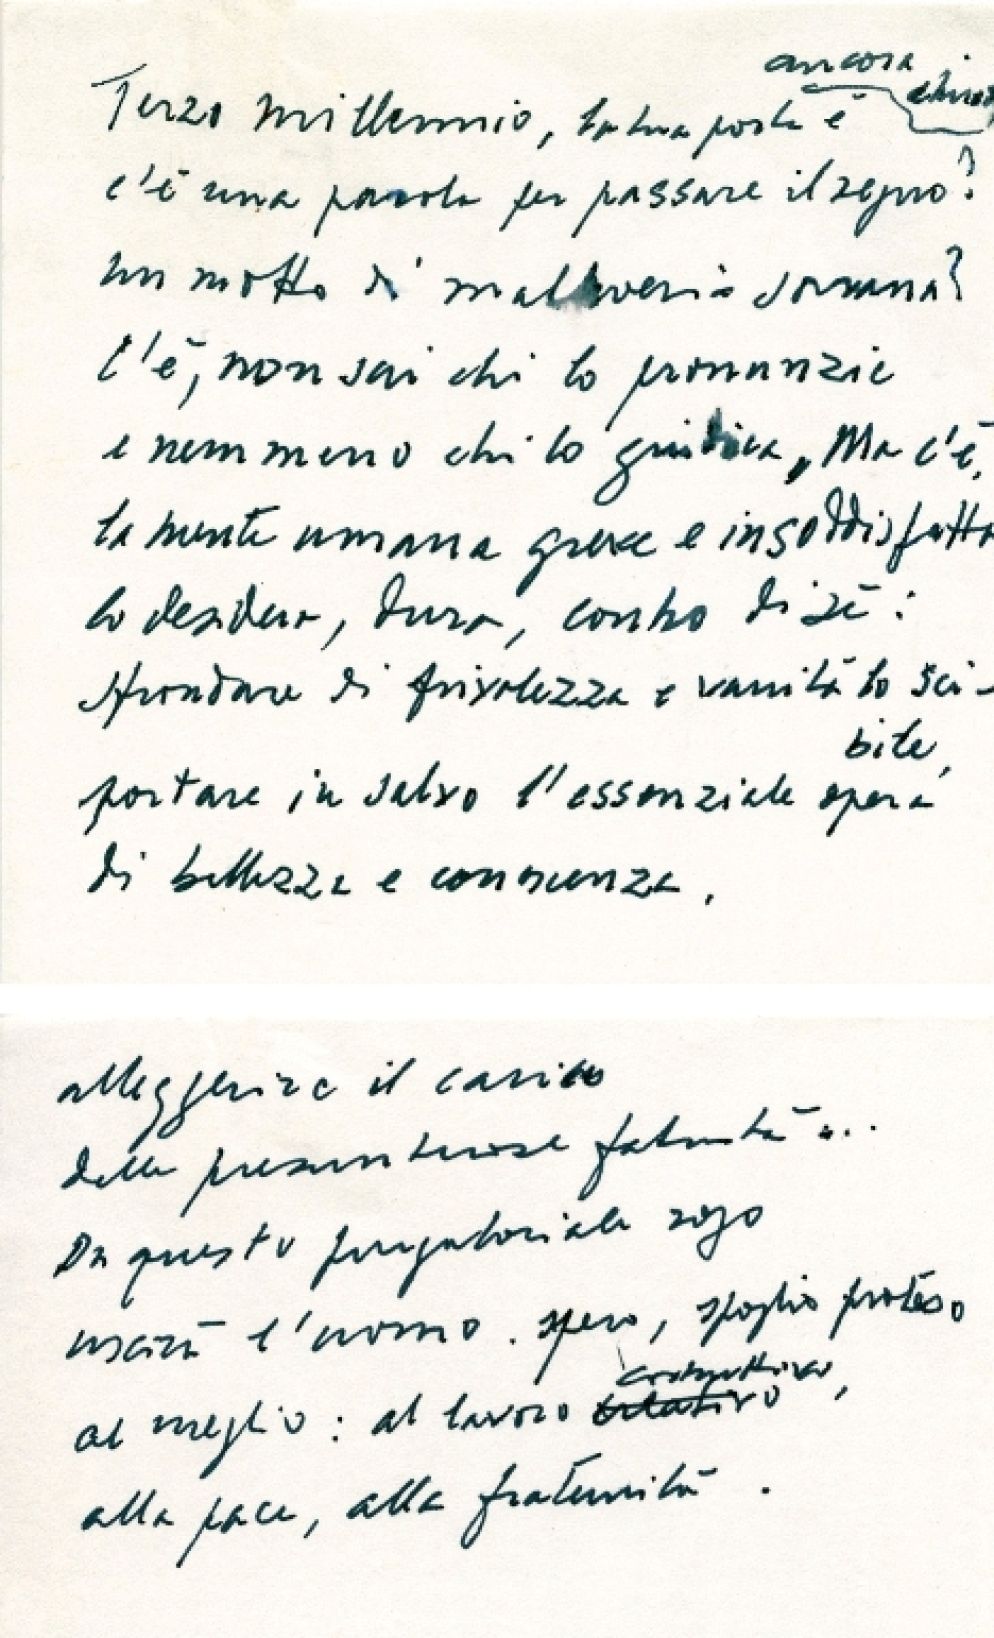 Terzo millennio, la tua porta è ancora chiusa
c'è una parola per passare il segno?
un motto di malleveria sovrana?
C'è, non sai chi lo pronunzie
e nemmeno chi lo giudica, Ma c'è,
la mente umana greve e insoddisfatta
lo desidera, dura, contro di sé:
sfrondare di frivolezza e vanità lo sci-
bile,
portare in salvo l'essenziale opera
di bellezza e conoscenza.
alleggerire il carico
delle presuntuose fatuità...
Da questo purgatoriale rogo
uscirà l'uomo. spero, spoglio proteso
al meglio: al lavoro costruttivo,
alla pace, alla fraternità.